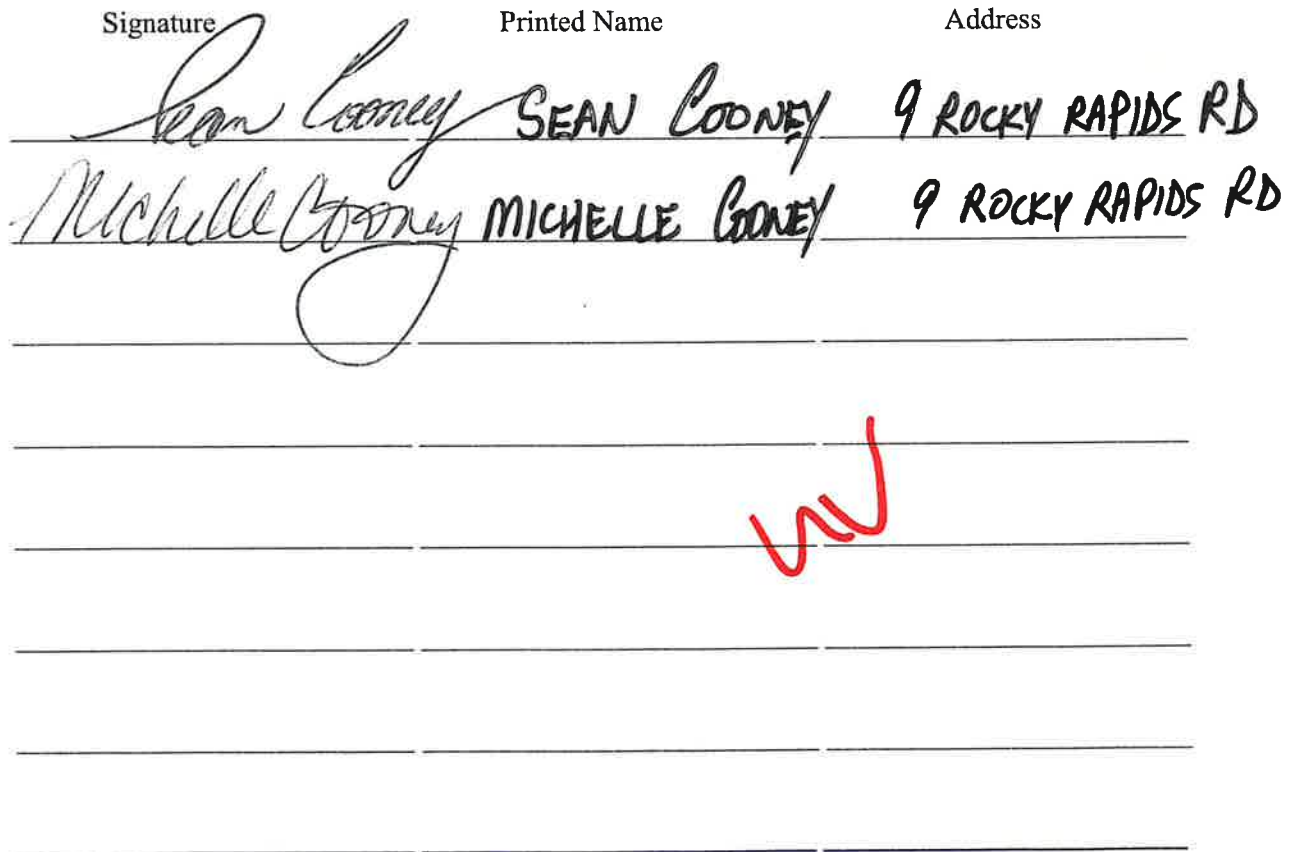 Signature Printed Name Address
Sean Cooney SEAN COONEY 9 ROCKY RAPIDS RD
Michelle Cooney MICHELLE COONEY 9 ROCKY RAPIDS RD